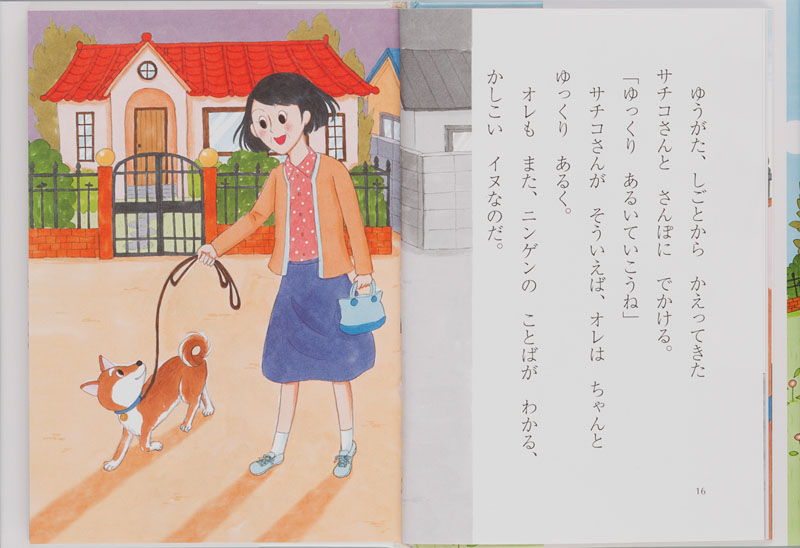 ゆうがた、しごとから かえってきた
サチコさんと さんぽに でかける。
「ゆっくり あるいていこうね」
サチコさんが そういえば、オレは ちゃんと
ゆっくり あるく。
オレも また、ニンゲンの ことばが わかる、
かしこい イヌなのだ。
16